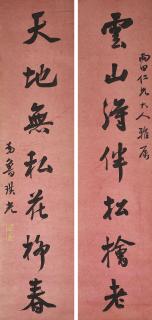 雲山得伴松檜老
雨田仁兄大人雅屬
天地無私花柳春